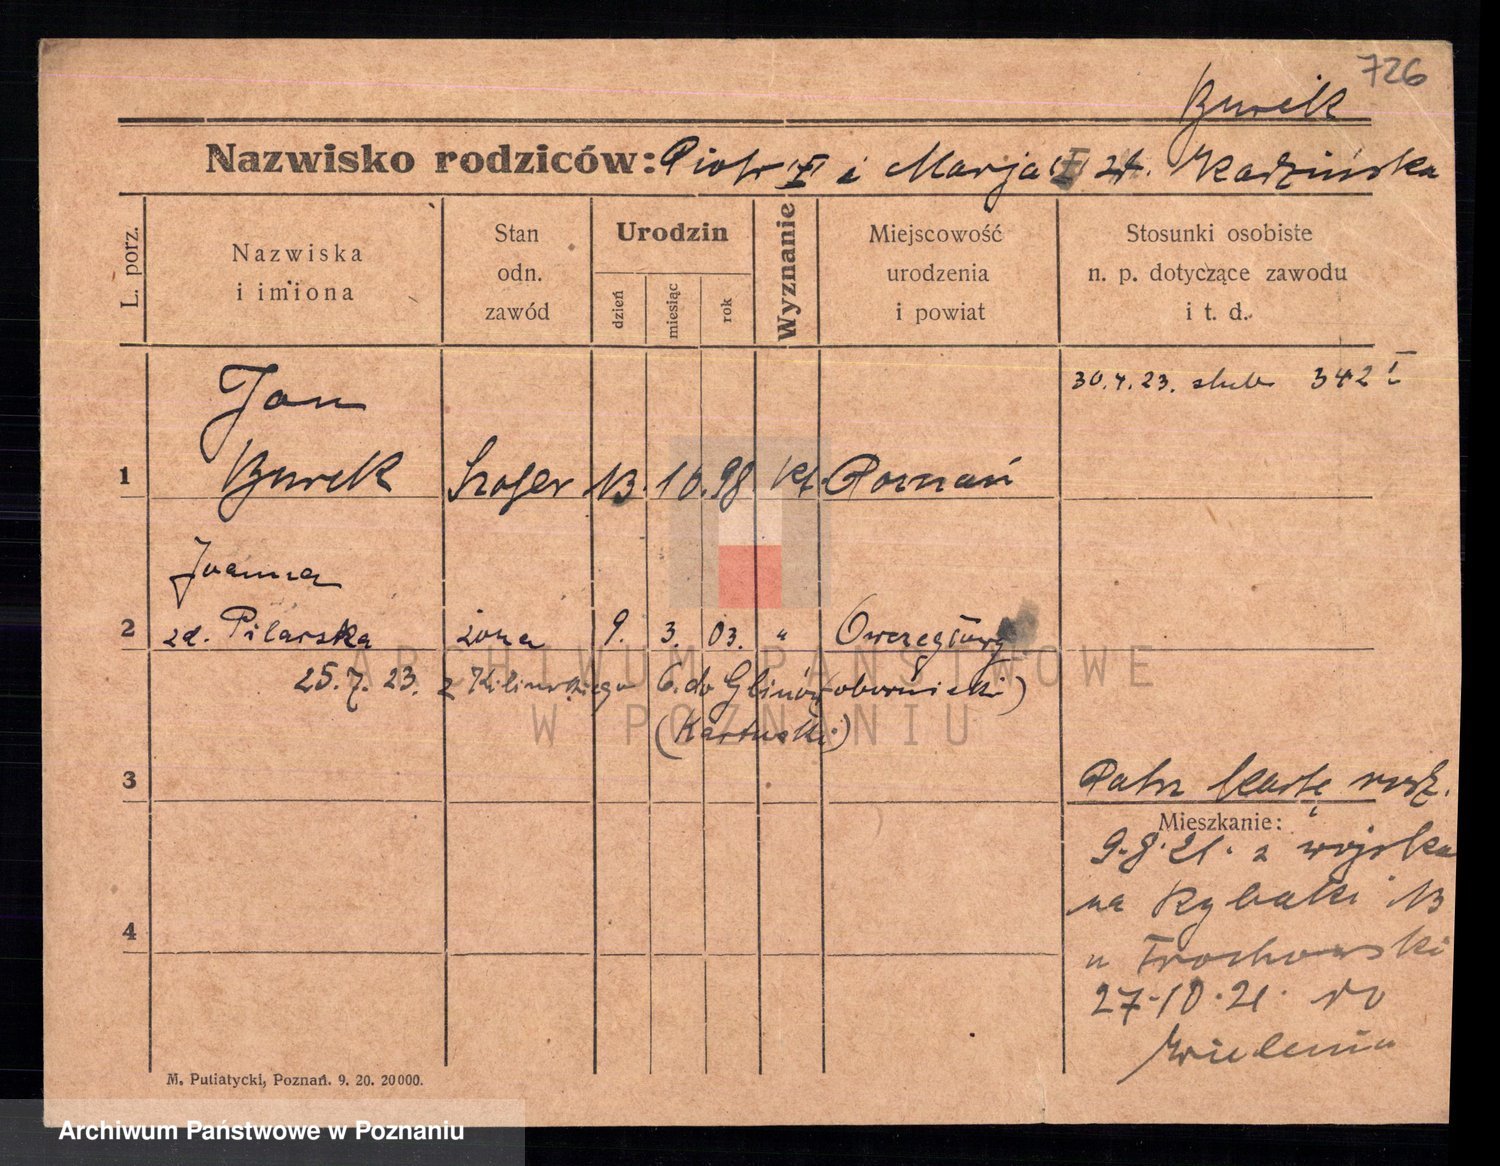 726
Burek
Nazwisko rodziców: Piotr II i Marja II zd. Kadzińska
L. porz.
Nazwiska i imiona
Stan odn. zawód
Urodzin
dzień
miesiąc
rok
Wyznanie
Miejscowość urodzenia i powiat
Stosunki osobiste n. p. dotyczące zawodu i t. d.
30.4.23. ślub 342 I
Jan
1 Burek Szofer 13. 10. 98 kt. Poznań
Joanna
2 zd. Pilarska żona 9. 3. 03. "
25.7.23. z Kilińskiego 6. do (obornicki)
(Kartuski)
3
Patrz kartę
Mieszkanie:
9.8.21. z wojska
na Rybaki 13
4
u
27.10.21. do
Wielenia
M. Putiatycki, Poznań. 9. 20. 20000.
ARCHIWUM PAŃSTWOWE
W POZNANIU
Archiwum Państwowe w Poznaniu